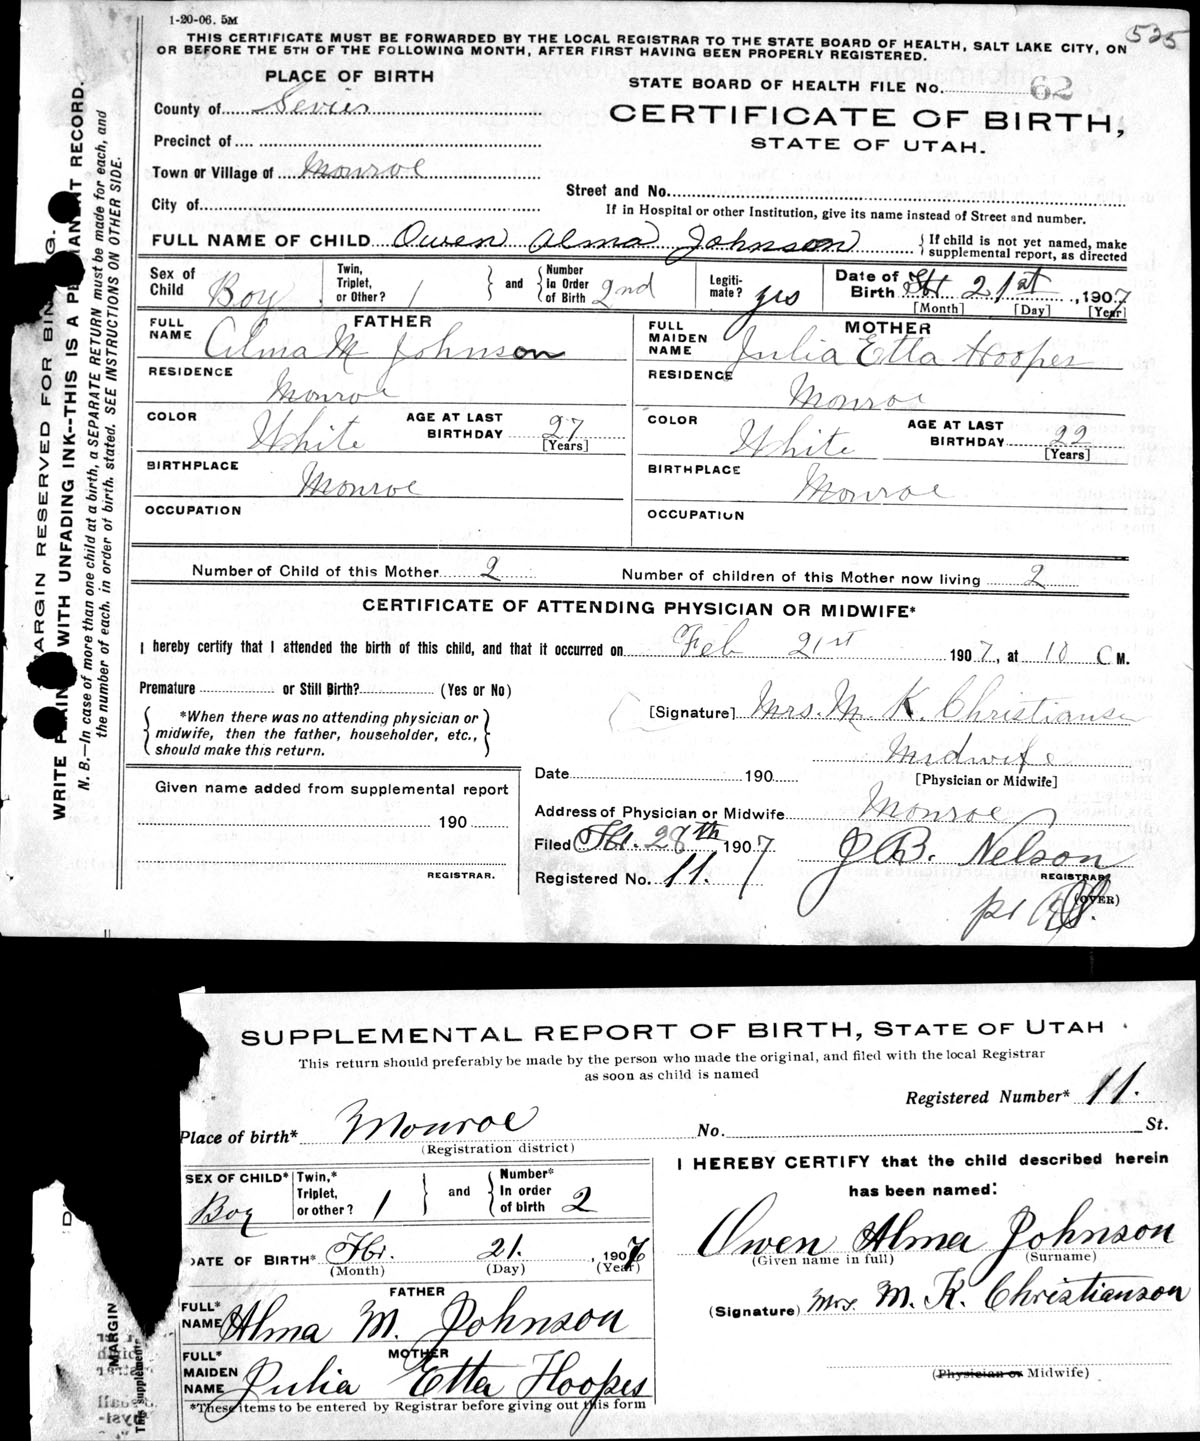 1-20-06. 5M
525
THIS CERTIFICATE MUST BE FORWARDED BY THE LOCAL REGISTRAR TO THE STATE BOARD OF HEALTH, SALT LAKE CITY, ON
OR BEFORE THE 5TH OF THE FOLLOWING MONTH, AFTER FIRST HAVING BEEN PROPERLY REGISTERED.
PLACE OF BIRTH
STATE BOARD OF HEALTH FILE No. 62
County of Sevier
CERTIFICATE OF BIRTH,
STATE OF UTAH.
Precinct of
Town or Village of Monroe
Street and No.
City of
If in Hospital or other Institution, give its name instead of Street and number.
FULL NAME OF CHILD Owen Alma Johnson { If child is not yet named, make
supplemental report, as directed
Sex of Child Boy
Twin, Triplet, or Other? 1 } and { Number In Order of Birth 2nd
Legiti-mate? yes
Date of Birth Feb. 21st, 1907
[Month] [Day] [Year]
FATHER
FULL NAME Alma M Johnson
MOTHER
FULL MAIDEN NAME Julia Etta Hoopes
RESIDENCE Monroe
RESIDENCE Monroe
COLOR White AGE AT LAST BIRTHDAY 27 [Years]
COLOR White AGE AT LAST BIRTHDAY 22 [Years]
BIRTHPLACE Monroe
BIRTHPLACE Monroe
OCCUPATION
OCCUPATION
Number of Child of this Mother 2
Number of children of this Mother now living 2
CERTIFICATE OF ATTENDING PHYSICIAN OR MIDWIFE*
I hereby certify that I attended the birth of this child, and that it occurred on Feb 21st 1907, at 10 M.
Premature or Still Birth? (Yes or No)
*When there was no attending physician or
midwife, then the father, householder, etc.,
should make this return.
[Signature] Mrs. M K. Christianse
Midwife
[Physician or Midwife]
Date 190
Given name added from supplemental report
190
REGISTRAR.
Address of Physician or Midwife Monroe
Filed Feb. 28th 1907
J B. Nelson
REGISTRAR
Registered No. 11.
(OVER)
MARGIN RESERVED FOR BINDING.
WRITE PLAINLY WITH UNFADING INK--THIS IS A PERMANENT RECORD.
N. B.—In case of more than one child at a birth, a SEPARATE RETURN must be made for each, and
the number of each, in order of birth, stated. SEE INSTRUCTIONS ON OTHER SIDE.
SUPPLEMENTAL REPORT OF BIRTH, STATE OF UTAH
This return should preferably be made by the person who made the original, and filed with the local Registrar
as soon as child is named
Registered Number* 11.
Place of birth* Monroe
(Registration district)
No. St.
SEX OF CHILD* Boy
Twin,* Triplet, or other? 1 } and { Number* In order of birth 2
I HEREBY CERTIFY that the child described herein
has been named:
Owen Alma Johnson
(Given name in full) (Surname)
DATE OF BIRTH* Feb. 21. , 1907
(Month) (Day) (Year)
FATHER
FULL* NAME Alma M. Johnson
(Signature) Mrs. M. K. Christianson
MOTHER
FULL* MAIDEN NAME Julia Etta Hoopes
(Physician or Midwife)
*These items to be entered by Registrar before giving out this form
MARGIN